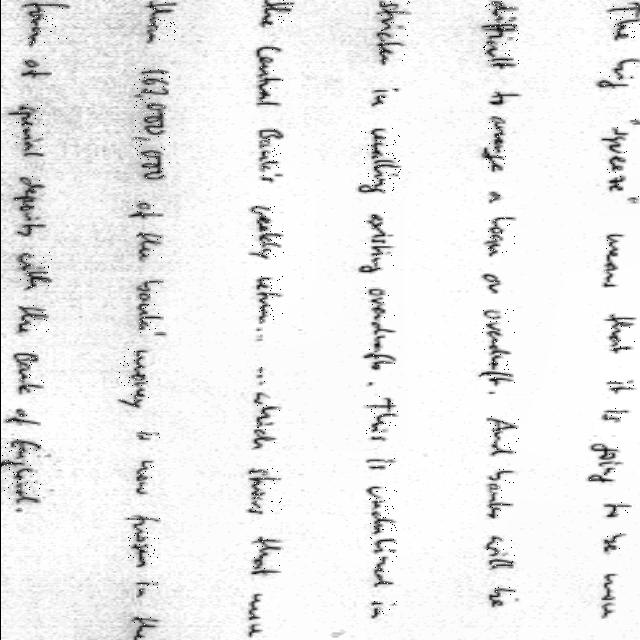 The big "squeeze" means that it is going to be more
difficult to arrange a loan or overdraft. And banks will be
stricter in recalling existing overdrafts. This is underlined in
the Central Bank's weekly return... ... which shows that more
than 162,000,000 of the banks' money is now frozen in the
form of special deposits with the Bank of England.